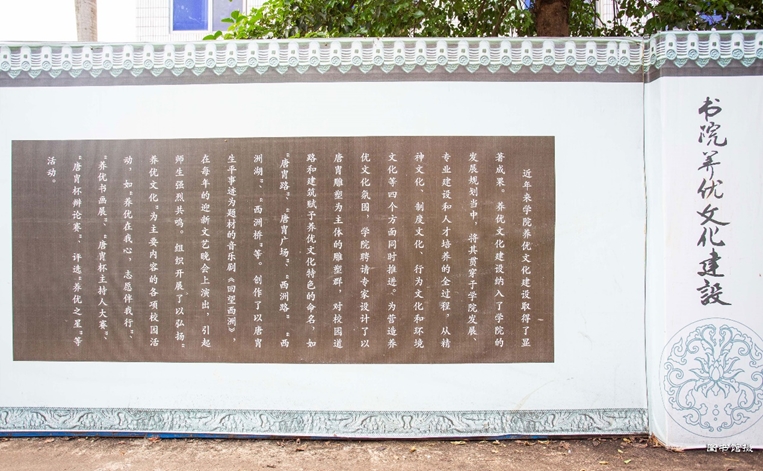 书院养优文化建設
近年来学院养优文化建设取得了显
著成果。养优文化建设纳入了学院的
发展规划当中，将其贯穿于学院发展、
专业建设和人才培养的全过程，从精
神文化、制度文化、行为文化和环境
文化等四个方面同时推进。为营造养
优文化氛围，学院聘请专家设计了以
唐胄雕塑为主体的雕塑群，对校园道
路和建筑赋予养优文化特色的命名，如
“唐胄路”、“唐胄广场”、“西洲路”、“西
洲湖”、“西洲桥”等。创作了以唐胄
生平事迹为题材的音乐剧《回望西洲》，
在每年的迎新文艺晚会上演出，引起
师生强烈共鸣。组织开展了以弘扬“
养优文化”为主要内容的各项校园活
动，如“养优在我心，志愿伴我行”、
“养优书画展”、“唐胄杯主持人大赛”、
“唐胄杯辩论赛”、评选“养优之星”等
活动。
图书馆摄